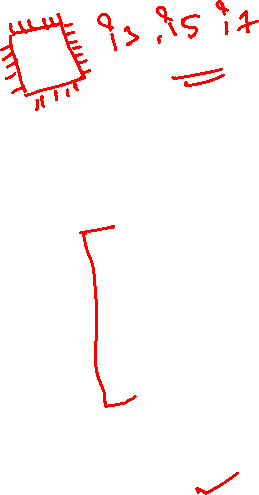 i3, i5 i7